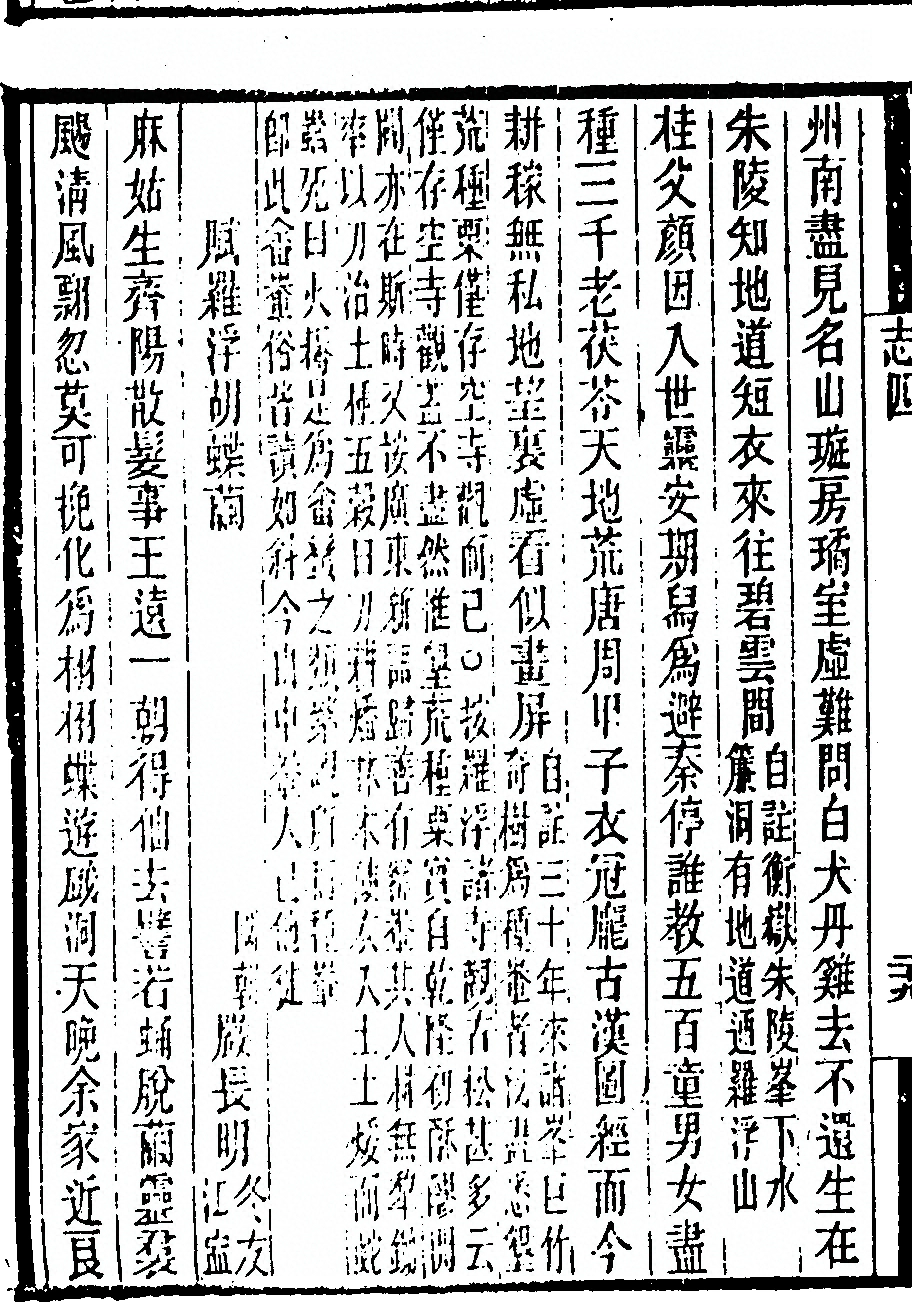 州南盡見名山璇房璚室虛難問白犬丹雞去不還生在
朱陵知地道短衣來往碧雲間自註衡嶽朱陵峯下水簾洞有地道通羅浮山
桂父顏因入世靈安期舄為避秦停誰教五百童男女盡
種三千老茯苓天地荒唐周甲子衣冠龐古漢圖經而今
耕稼無私地望裏虛看似畫屏自註三十年來諸峯巨竹奇樹為種畬者伐盡悉墾
荒種栗僅存空寺觀而已○按羅浮諸寺觀古松甚多云
僅存空寺觀 不盡然惟墾荒種粟實自乾隆初
閣亦在斯時又 廣東新語歸善有 其人 無
率以刀治土種五穀曰刀耕燔林木使灰入土土煖而蛇
蟲死曰火耨是為畬蠻之類
即此畬 俗皆 今山中 人已他徙
賦羅浮胡蝶繭 國朝嚴長明冬友江寧
麻姑生齊陽散髮事王遠一朝得仙去譬若蛹脫繭靈裙
颺清風飄忽莫可挽化為栩栩蝶遊戲洞天晚余家近艮
志四